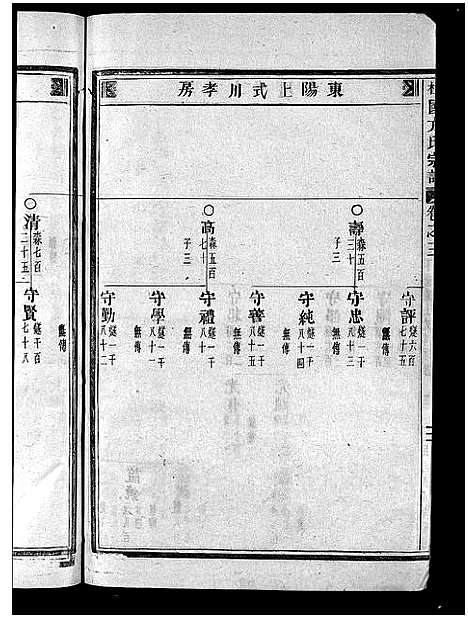 東陽上式川孝房
氏宗譜
卷之三
守評 燧六百七十五
壽 森五百三十
子三
守忠 燧一千八十三
無傳
守純 燧一千八十四
無傳
守善 燧一千八十五
無傳
高 森五百七十
子三
守禮 燧一千八十一
無傳
守學 燧一千八十
無傳
守勤 燧一千八十二
清 森七百二十五
守賢 燧千百七十八
無傳